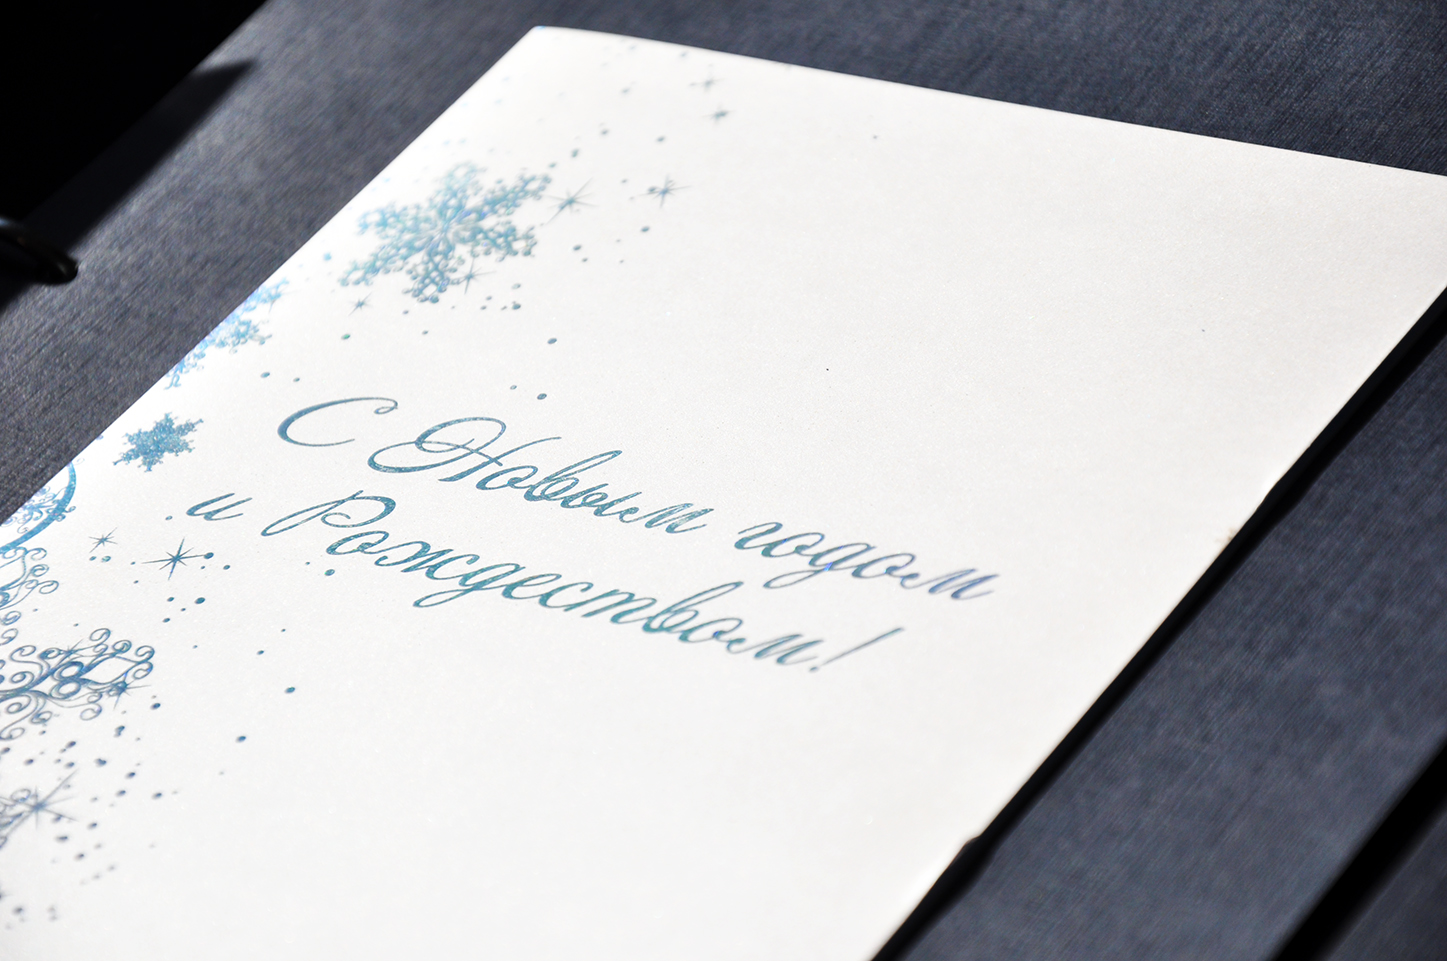 С Новым годом
и Рождеством!